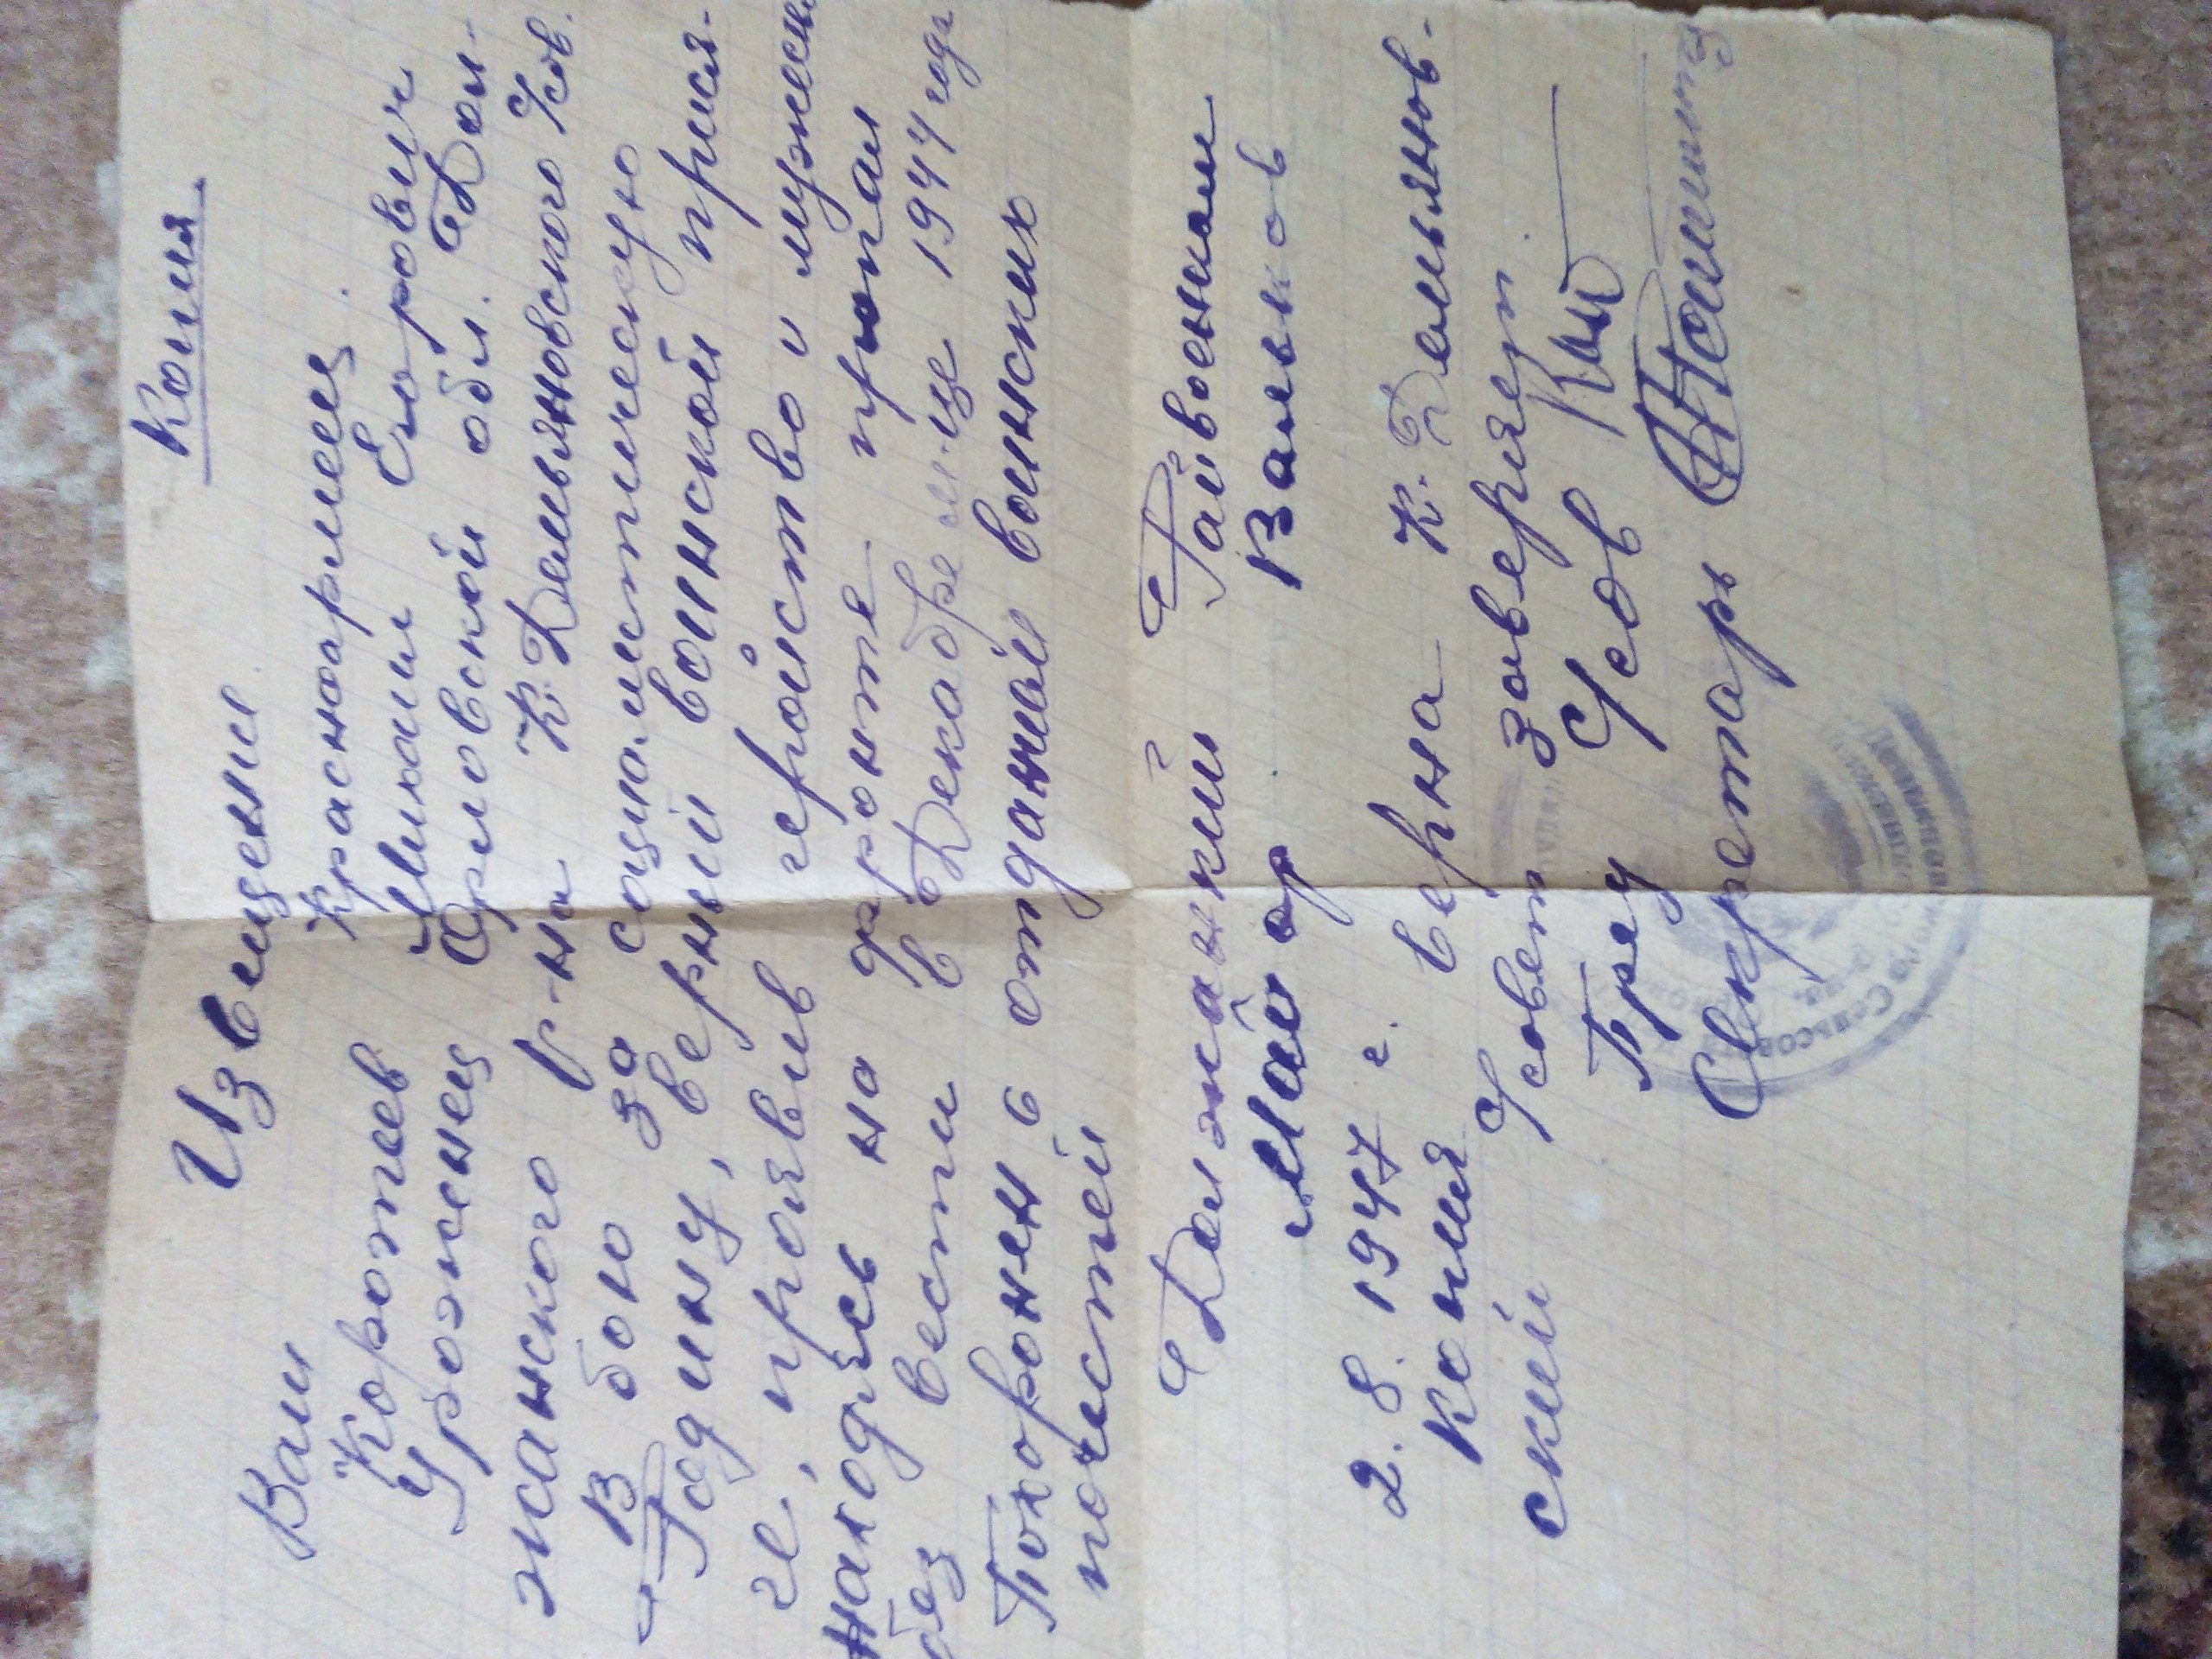 Копия
Извещение
Ваш красноармеец
Коротеев Михаил Егорович
Уроженец Орловской обл. Дол-
жанского р-на К. Демьяновского с/сов.
В бою за социалистическую
Родину, верный воинской прися-
ге, проявив геройство и мужеств
находясь на фронте пропал
без вести в Декабре м-це 1944 года
Похоронен с отданай воинских
почестей
Должанкий Райвоенком
Майор Вальков
2. 8. 1947 г.
Копия верна К. Демьянов-
ский с/совет заверяет.
Пред с/сов
Секретарь